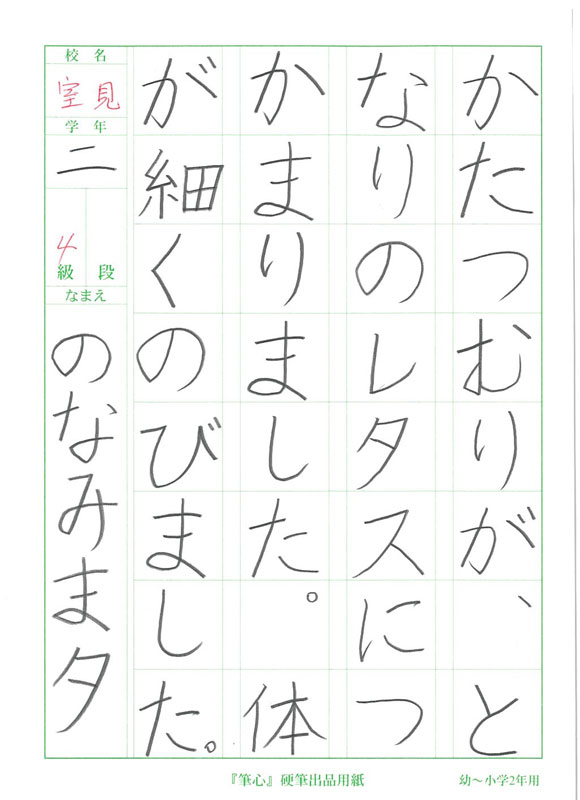 かたつむりが、と
なりのレタスにつ
かまりました。体
が細くのびました。
校名
室見
学年
二
4
級 段
なまえ
のなみま夕
『筆心』硬筆出品用紙
幼～小学2年用